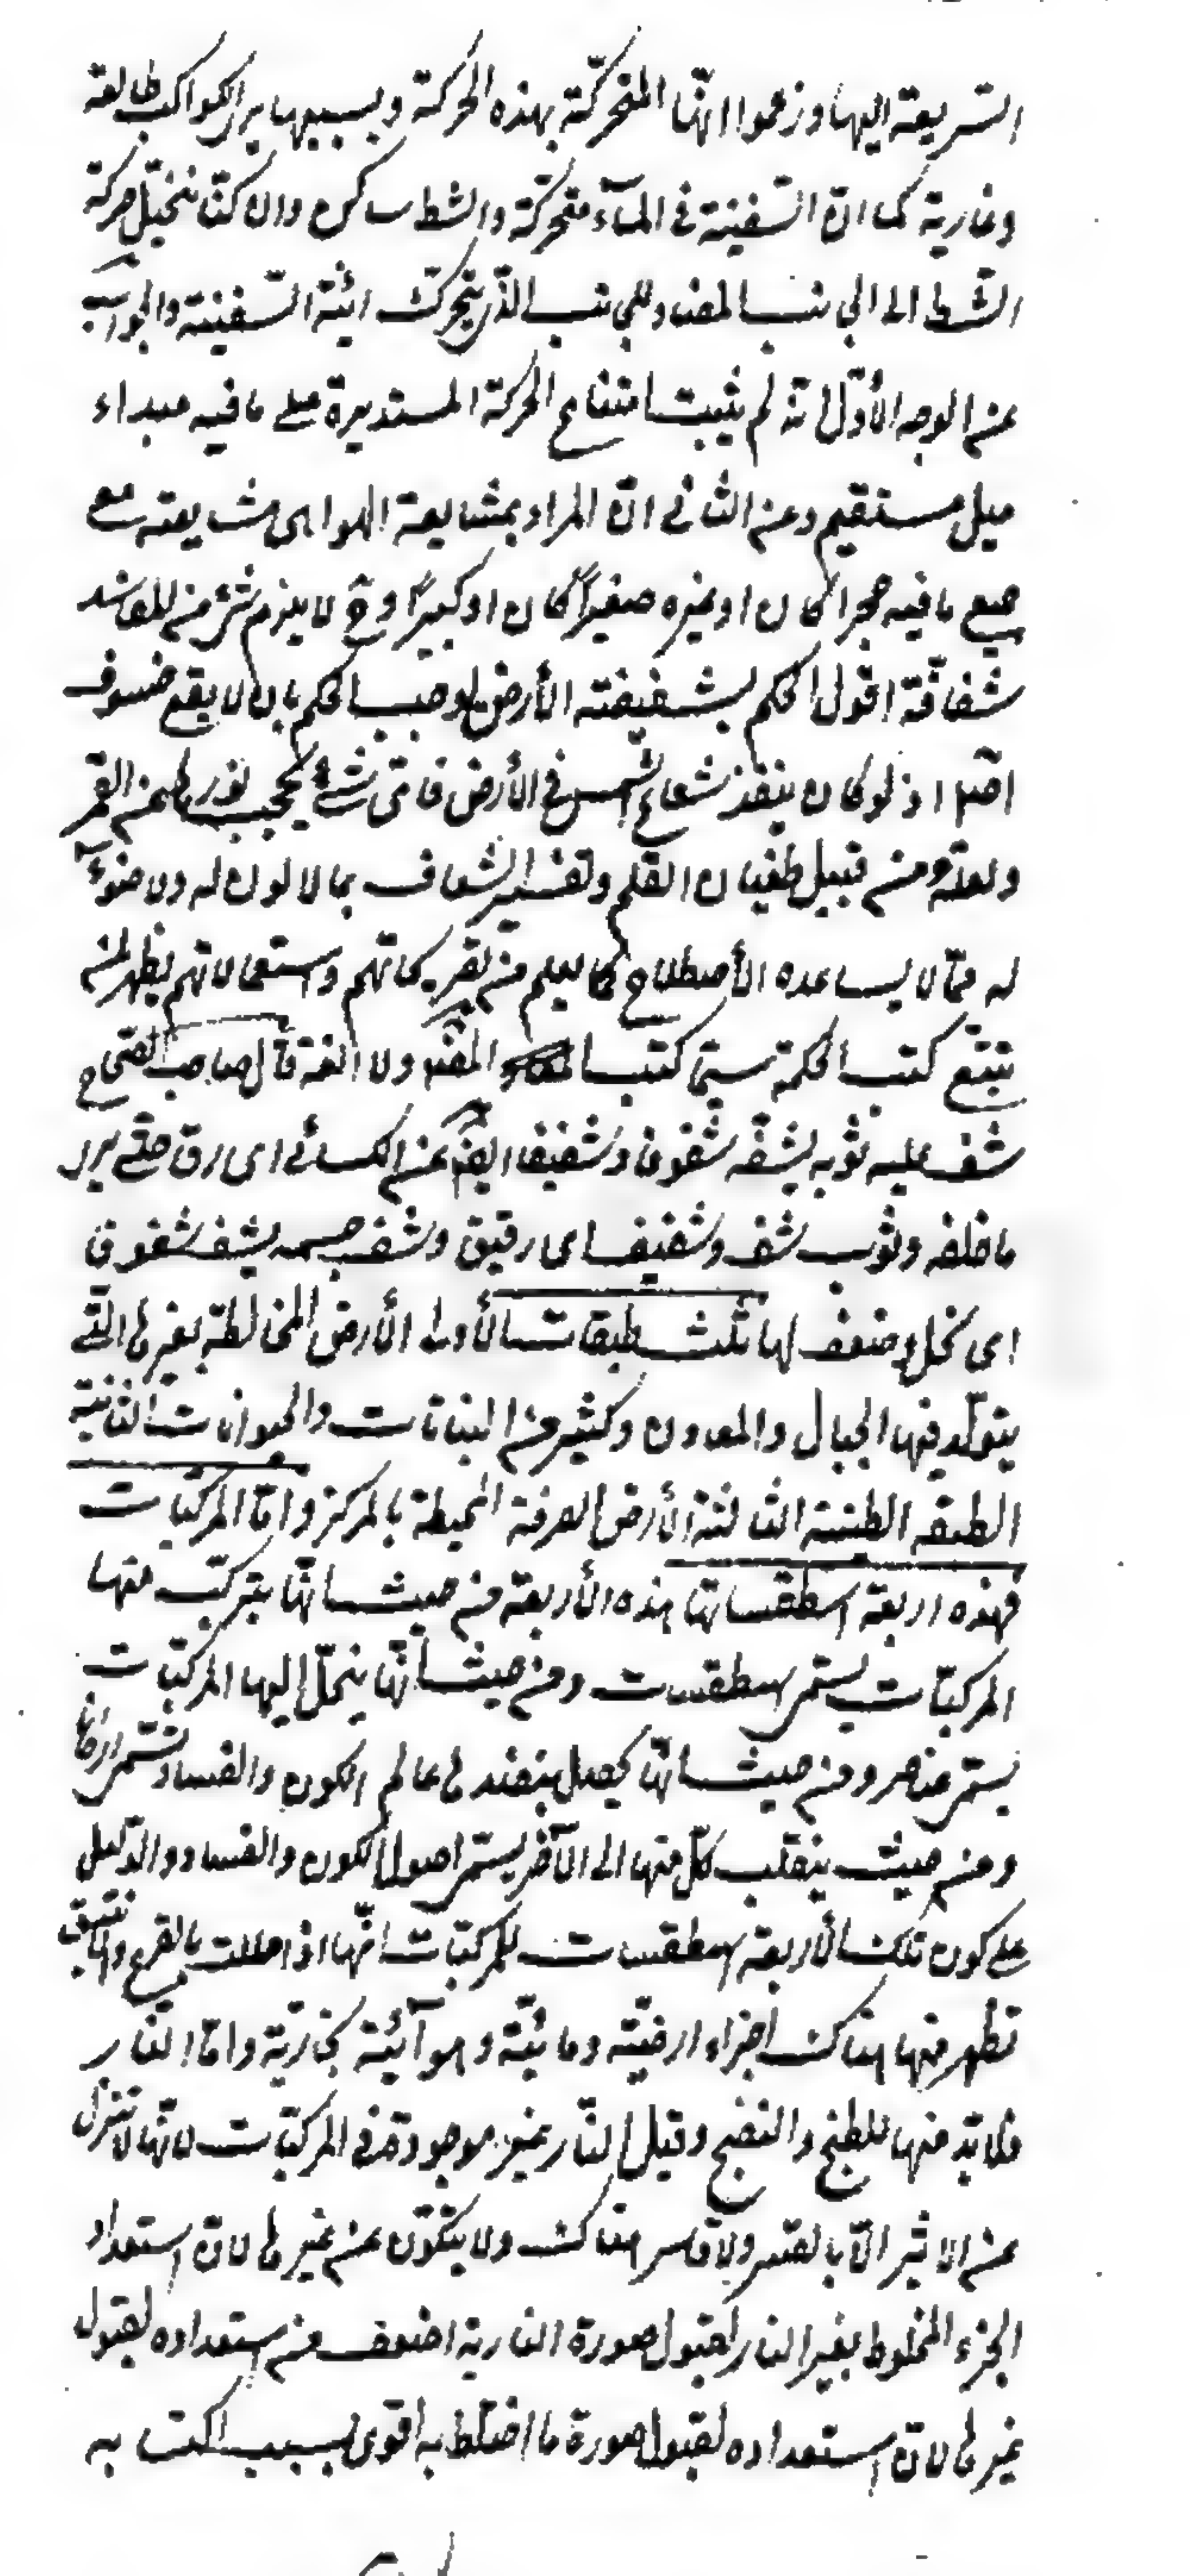 السريعة اليها وزعموا انها المتحركة بهذه الحركة وبسببها يرى الكواكب طالعة
وغاربة كما ان السفينة في المآء متحركة والشط ساكن والا كنا نتخيل حركة
الشط الى الجانب المضاد للجانب الذي يتحرك اليه السفينة والجواب
عن الوجه الأول انه لم يثبت امتناع الحركة المستديرة على ما فيه مبداء
ميل مستقيم وعن الثاني ان المراد بمشايعة الهوا هي مشايعته مع
جميع ما فيه حجرا كان او غيره صغيراً كان او كبيراً وح لا يلزم شئ من المفاسد
شفافة اقول الحكم بشفيفته الأرض يوجب الحكم بان لا يقع خسوف
اصلا اذ لو كان ينفذ شعاع الشمس في الأرض فاى شئ يحجب نورها عن القمر
ولعله من قبيل طغيان القلم وتفسير الشفاف بما لا لون له ولا ضوء
له مما لا يساعده الأصطلاح كما يعلم من تصريحاتهم واستعمالاتهم يظهر لمن
تتبع كتب الحكمة سيما كتب المص ولا اللغة قال صاحب الصحاح
شف عليه ثوبه يشف شفوفا وشفيفا ايض عن الكسائي اى رق حتى يرى
ما خلفه وثوب شف وشفيف اى رقيق وشف جسمه يشف شفوفا
اى نحل وضعف لها ثلث طبقات الأولى الأرض المخالطة بغيرها التي
يتولد فيها الجبال والمعادن وكثير من النباتات والحيوانات الثانية
الطبقة الطينية الثالثة الأرض الصرفة المحيطة بالمركز واما المركبات
فهذه اربعة اسطقساتها هذه الأربعة من حيث انها يتركب منها
المركبات يسمى اسطقسات ومن حيث انها ينحل اليها المركبات
يسمى عناصر ومن حيث انها يحصل بنضدها عالم الكون والفساد يسمى اركانا
ومن حيث ينقلب كل منها الى الآخر يسمى اصول الكون والفساد والدليل
على كون تلك الأربعة اسطقسات للمركبات انها اذا حللت بالقرع والانبيق
تظهر منها هناك اجزاء ارضية ومائية وهوآئية بخارية واما النار
فلا بد منها للطبخ والنضج وقيل النار غير موجودة في المركبات لانها لا تنزل
عن الاثير الا بالقسر ولا قاسر هناك ولا يتكون عن غيرها لان استعداد
الجزء المخلوط بغير النار لقبول صورة النارية اضعف من استعداده لقبول
غيرها لان استعداده لقبول صورة ما اختلط به اقوى بسبب اكتسابه